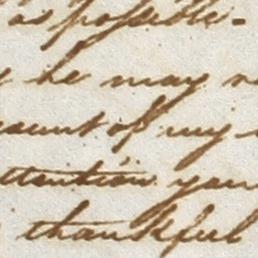 as possible-
he may
count of my
ttention your
thankful